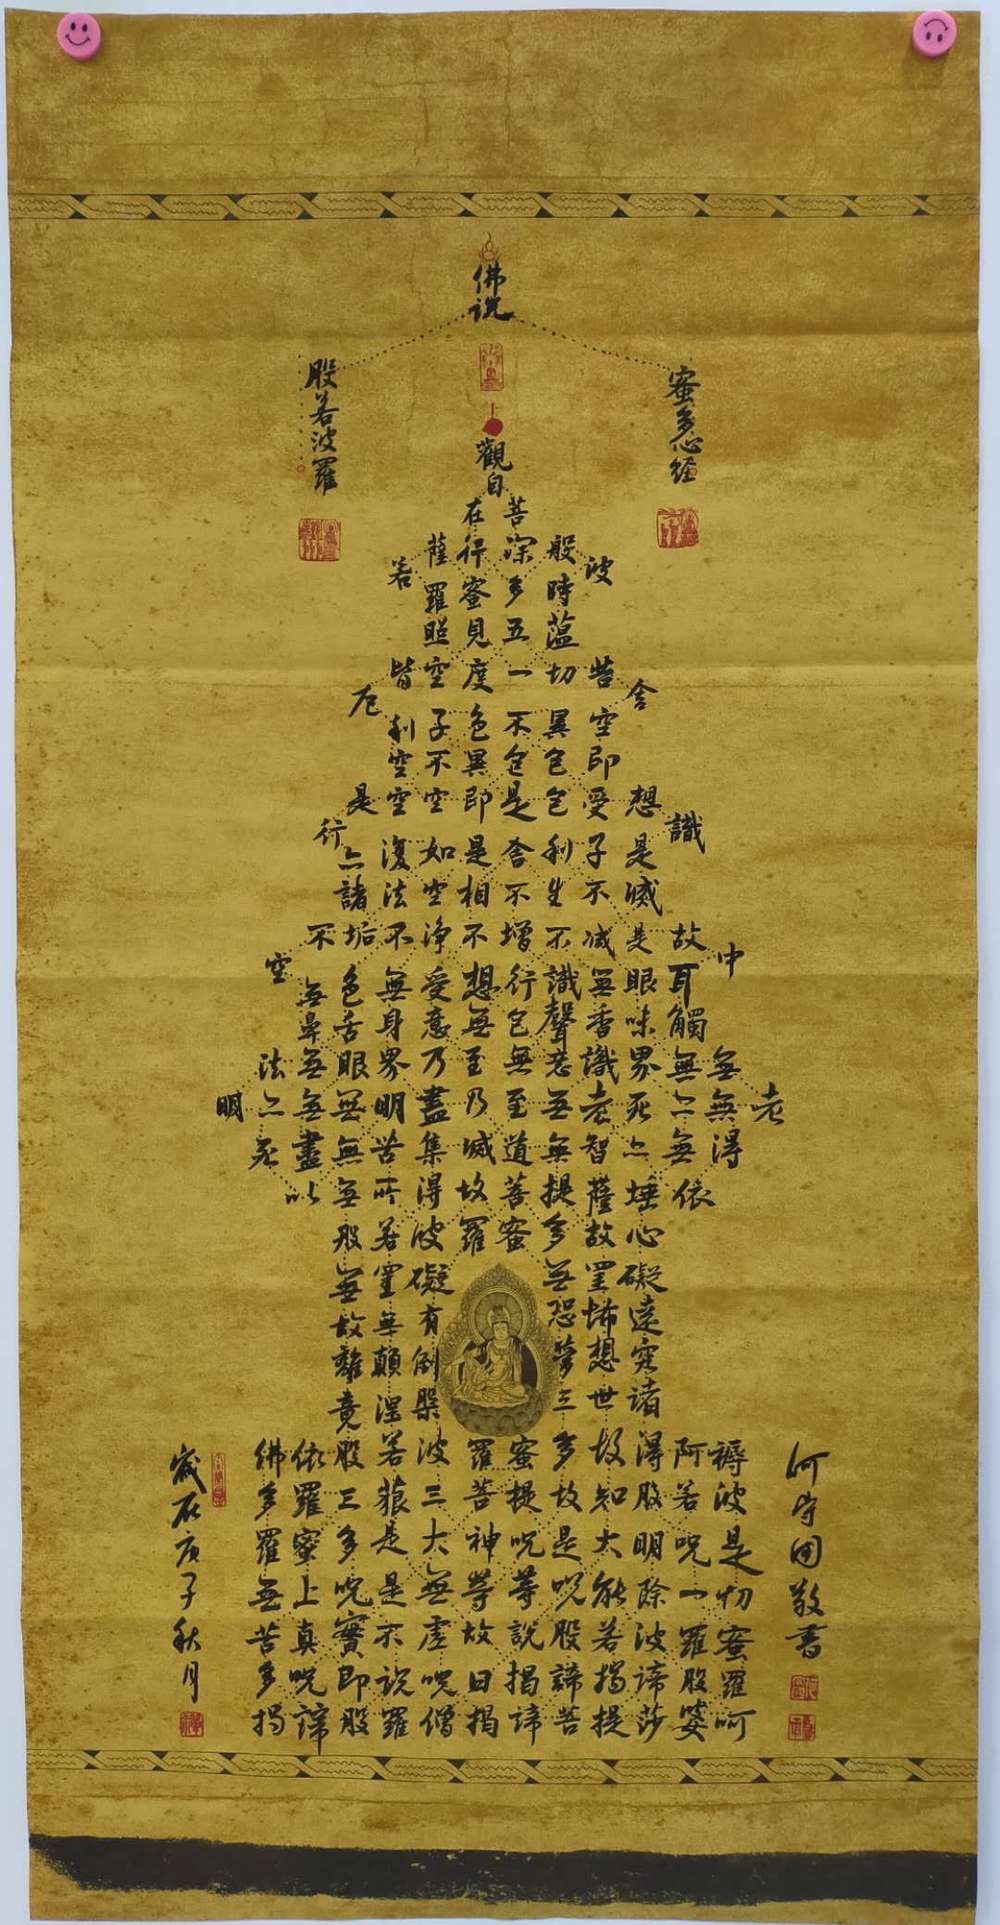 佛说
般若波羅
蜜多心經
觀自在菩薩行深般若波羅蜜多時照見五蘊皆空度一切苦厄
舍利子色不異空空不異色色即是空空即是色受想行識亦復如是
舍利子是諸法空相不生不滅不垢不净不增不减
是故空中無色無受想行識無眼耳鼻舌身意無色聲香味觸法
無眼界乃至無意識界無無明亦無無明盡乃至無老死亦無老死盡
無苦集滅道無智亦無得以無所得故菩提薩埵
依般若波羅蜜多故心無罣礙無罣礙故無有恐怖遠離顛倒夢想究竟涅槃
三世諸佛依般若波羅蜜多故得阿耨多羅三藐三菩提
故知般若波羅蜜多是大神咒是大明咒是無上咒是無等等咒
能除一切苦真實不虛故說般若波羅蜜多咒即說咒曰
揭諦揭諦波羅揭諦波羅僧揭諦菩提莎婆呵
歲在庚子秋月
何守國敬書